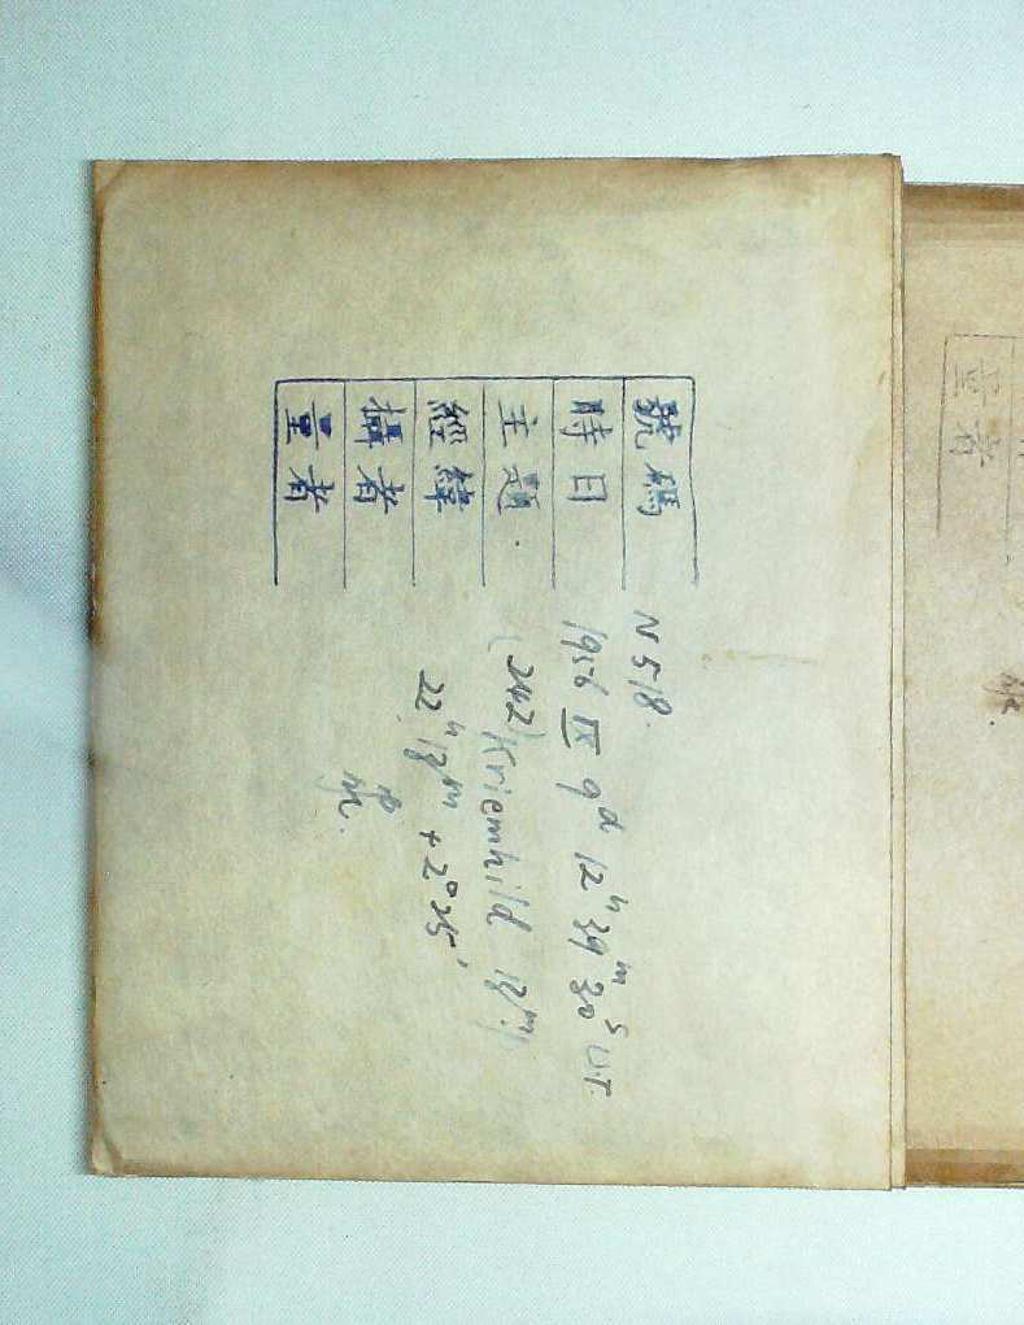 號碼 N 518.
時日 1956 IX 9d 12h 39m 30s U.T.
主題 (242) Kriemhild 13m
經緯 22h 13m +2° 25'
攝者
量者
量者